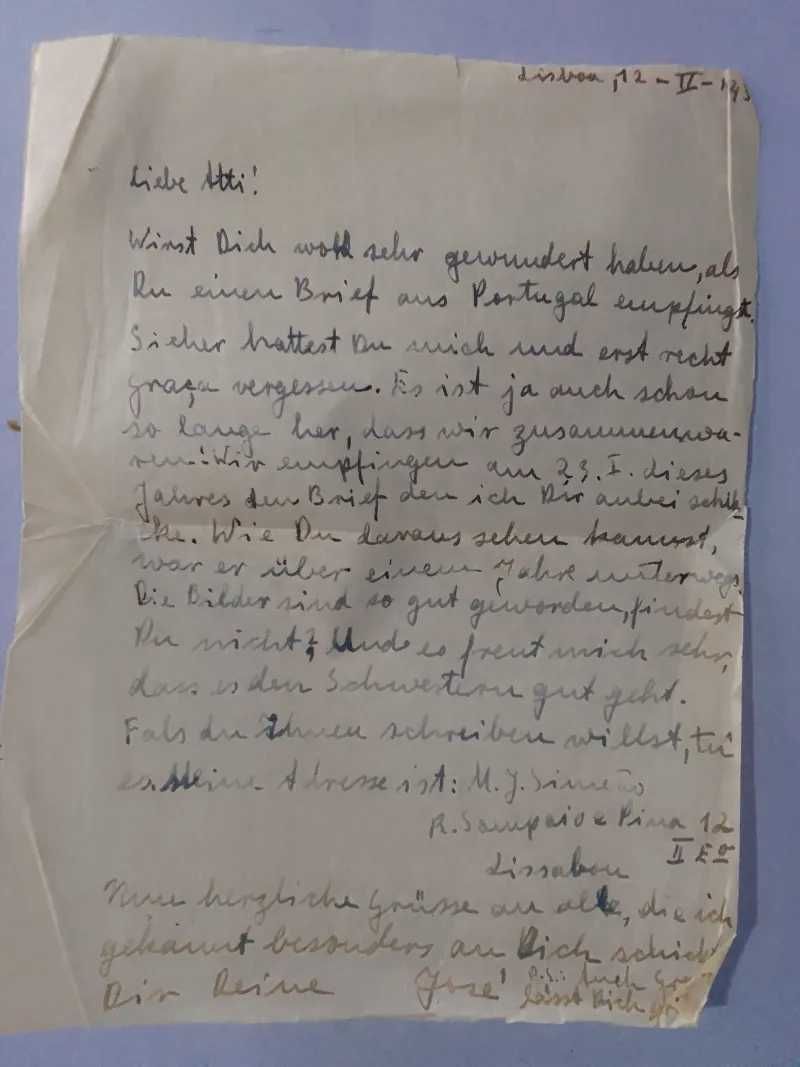 Lisboa, 12 - II - 1943
Liebe Atti!
Wirst Dich wohl sehr gewundert haben, als
Du einen Brief aus Portugal empfingst.
Sicher hattest Du mich und erst recht
Graça vergessen. Es ist ja auch schon
so lange her, dass wir zusammenwa-
ren! Wir empfingen am 23. I. dieses
Jahres den Brief den ich Dir anbei schik-
ke. Wie Du daraus sehen kannst,
war er über einem Jahre unterwegs.
Die Bilder sind so gut geworden, findest
Du nicht? Und es freut mich sehr,
dass es den Schwestern gut geht.
Fals du Ihnen schreiben willst, tu
es. Meine Adresse ist: M. J. Simeão
R. Sampaio e Pina 12
II Eº
Lissabon
Nun herzliche Grüsse an alle, die ich
gekannt besonders an Dich schick
Dir Deine José
P.S.: Auch
lässt Dich